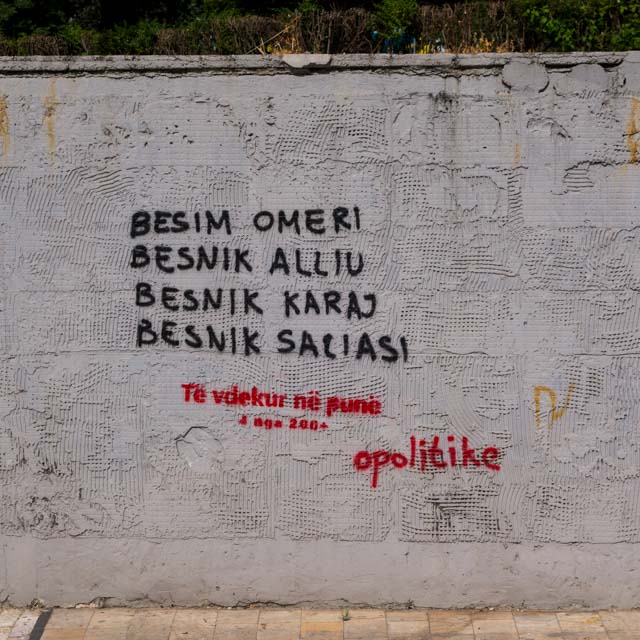 BESIM OMERI
BESNIK ALLIU
BESNIK KARAJ
BESNIK SALIASI
Të vdekur në punë
4 nga 200+
opolitike